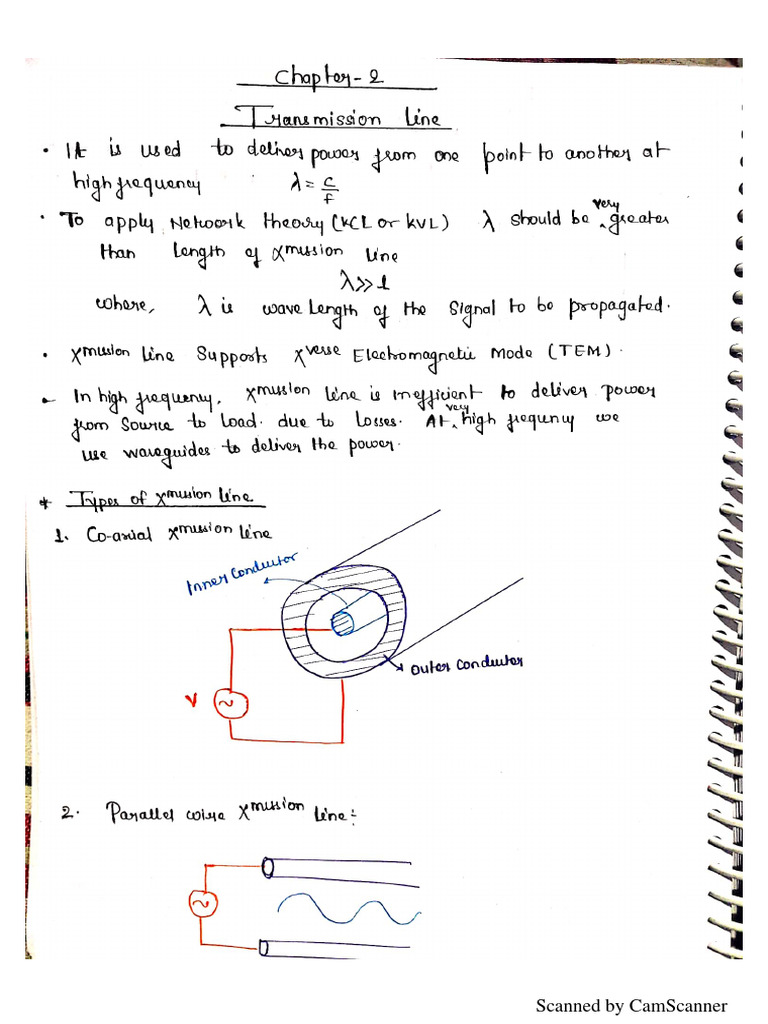 Chapter-2
Transmission Line
• It is used to deliver power from one point to another at
high frequency λ = c/f
• To apply Network theory (KCL or KVL) λ should be very greater
than Length of Xmission Line
λ>>l
where, λ is wave Length of the Signal to be propagated.
• Xmission Line Supports Xverse Electromagnetic Mode (TEM).
• In high frequency, Xmission Line is inefficient to deliver power
from Source to Load. due to Losses. At very high frequency we
use waveguides to deliver the power.
* Types of Xmission Line
1. Co-axial Xmission Line
Inner Conductor
Outer Conductor
V
2. Parallel wire Xmission Line:-
Scanned by CamScanner